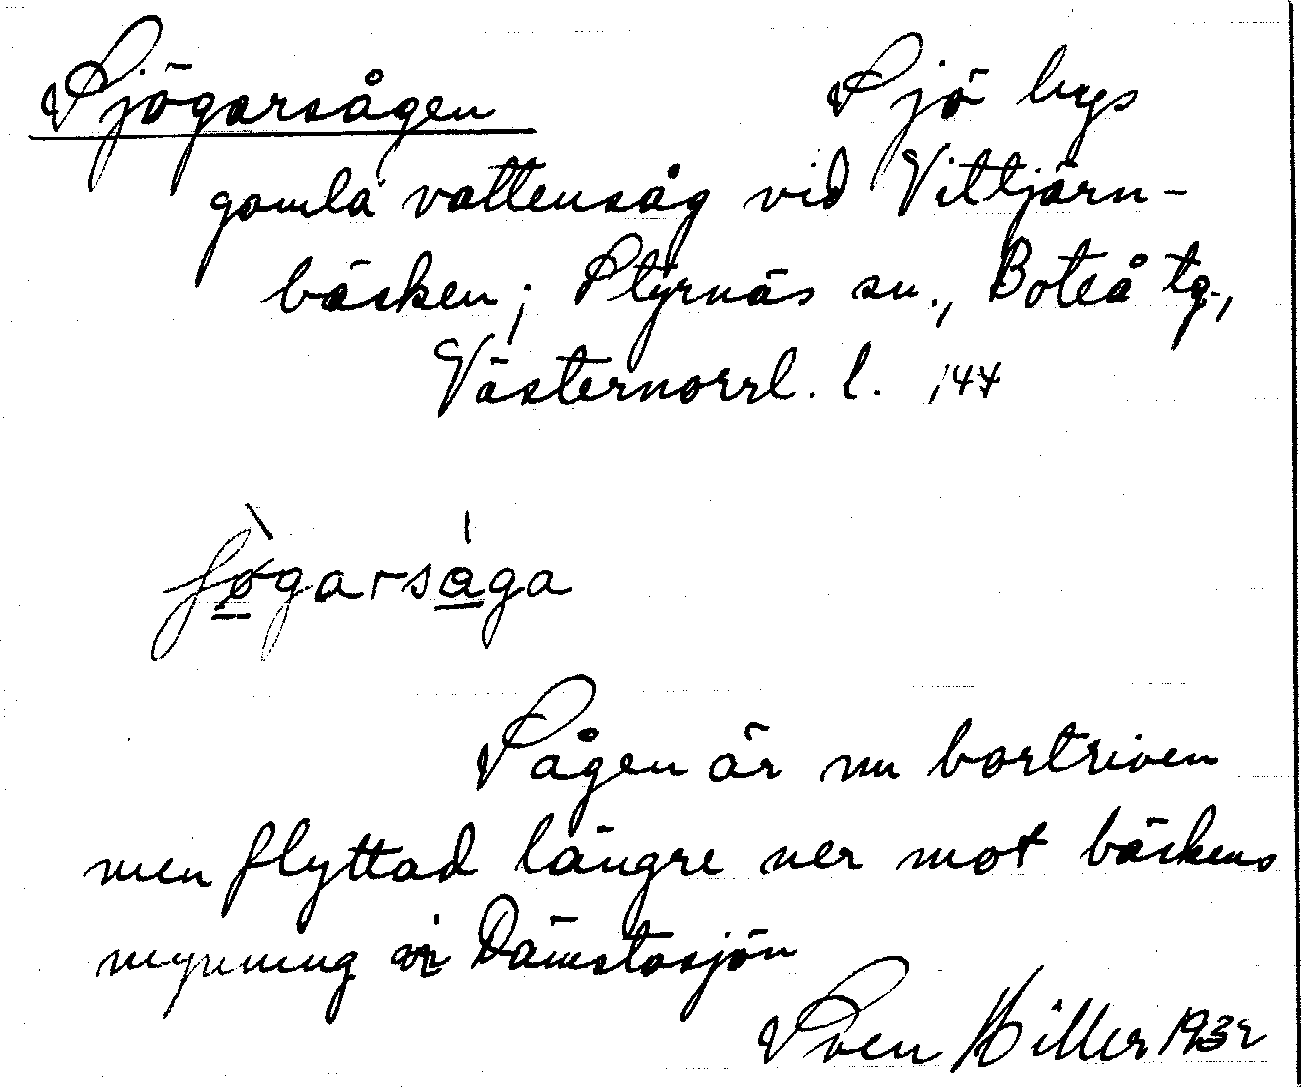 Sjögarsågen Sjö bys
gamla vattensåg vid Vittjärn-
bäcken; Styrnäs sn., Boteå tg.,
Västernorrl. l. 144
fø̀garsåga
Sågen är nu bortriven
men flyttad längre ner mot bäckens
mynning i Dämstasjön
Sven Hiller 1932